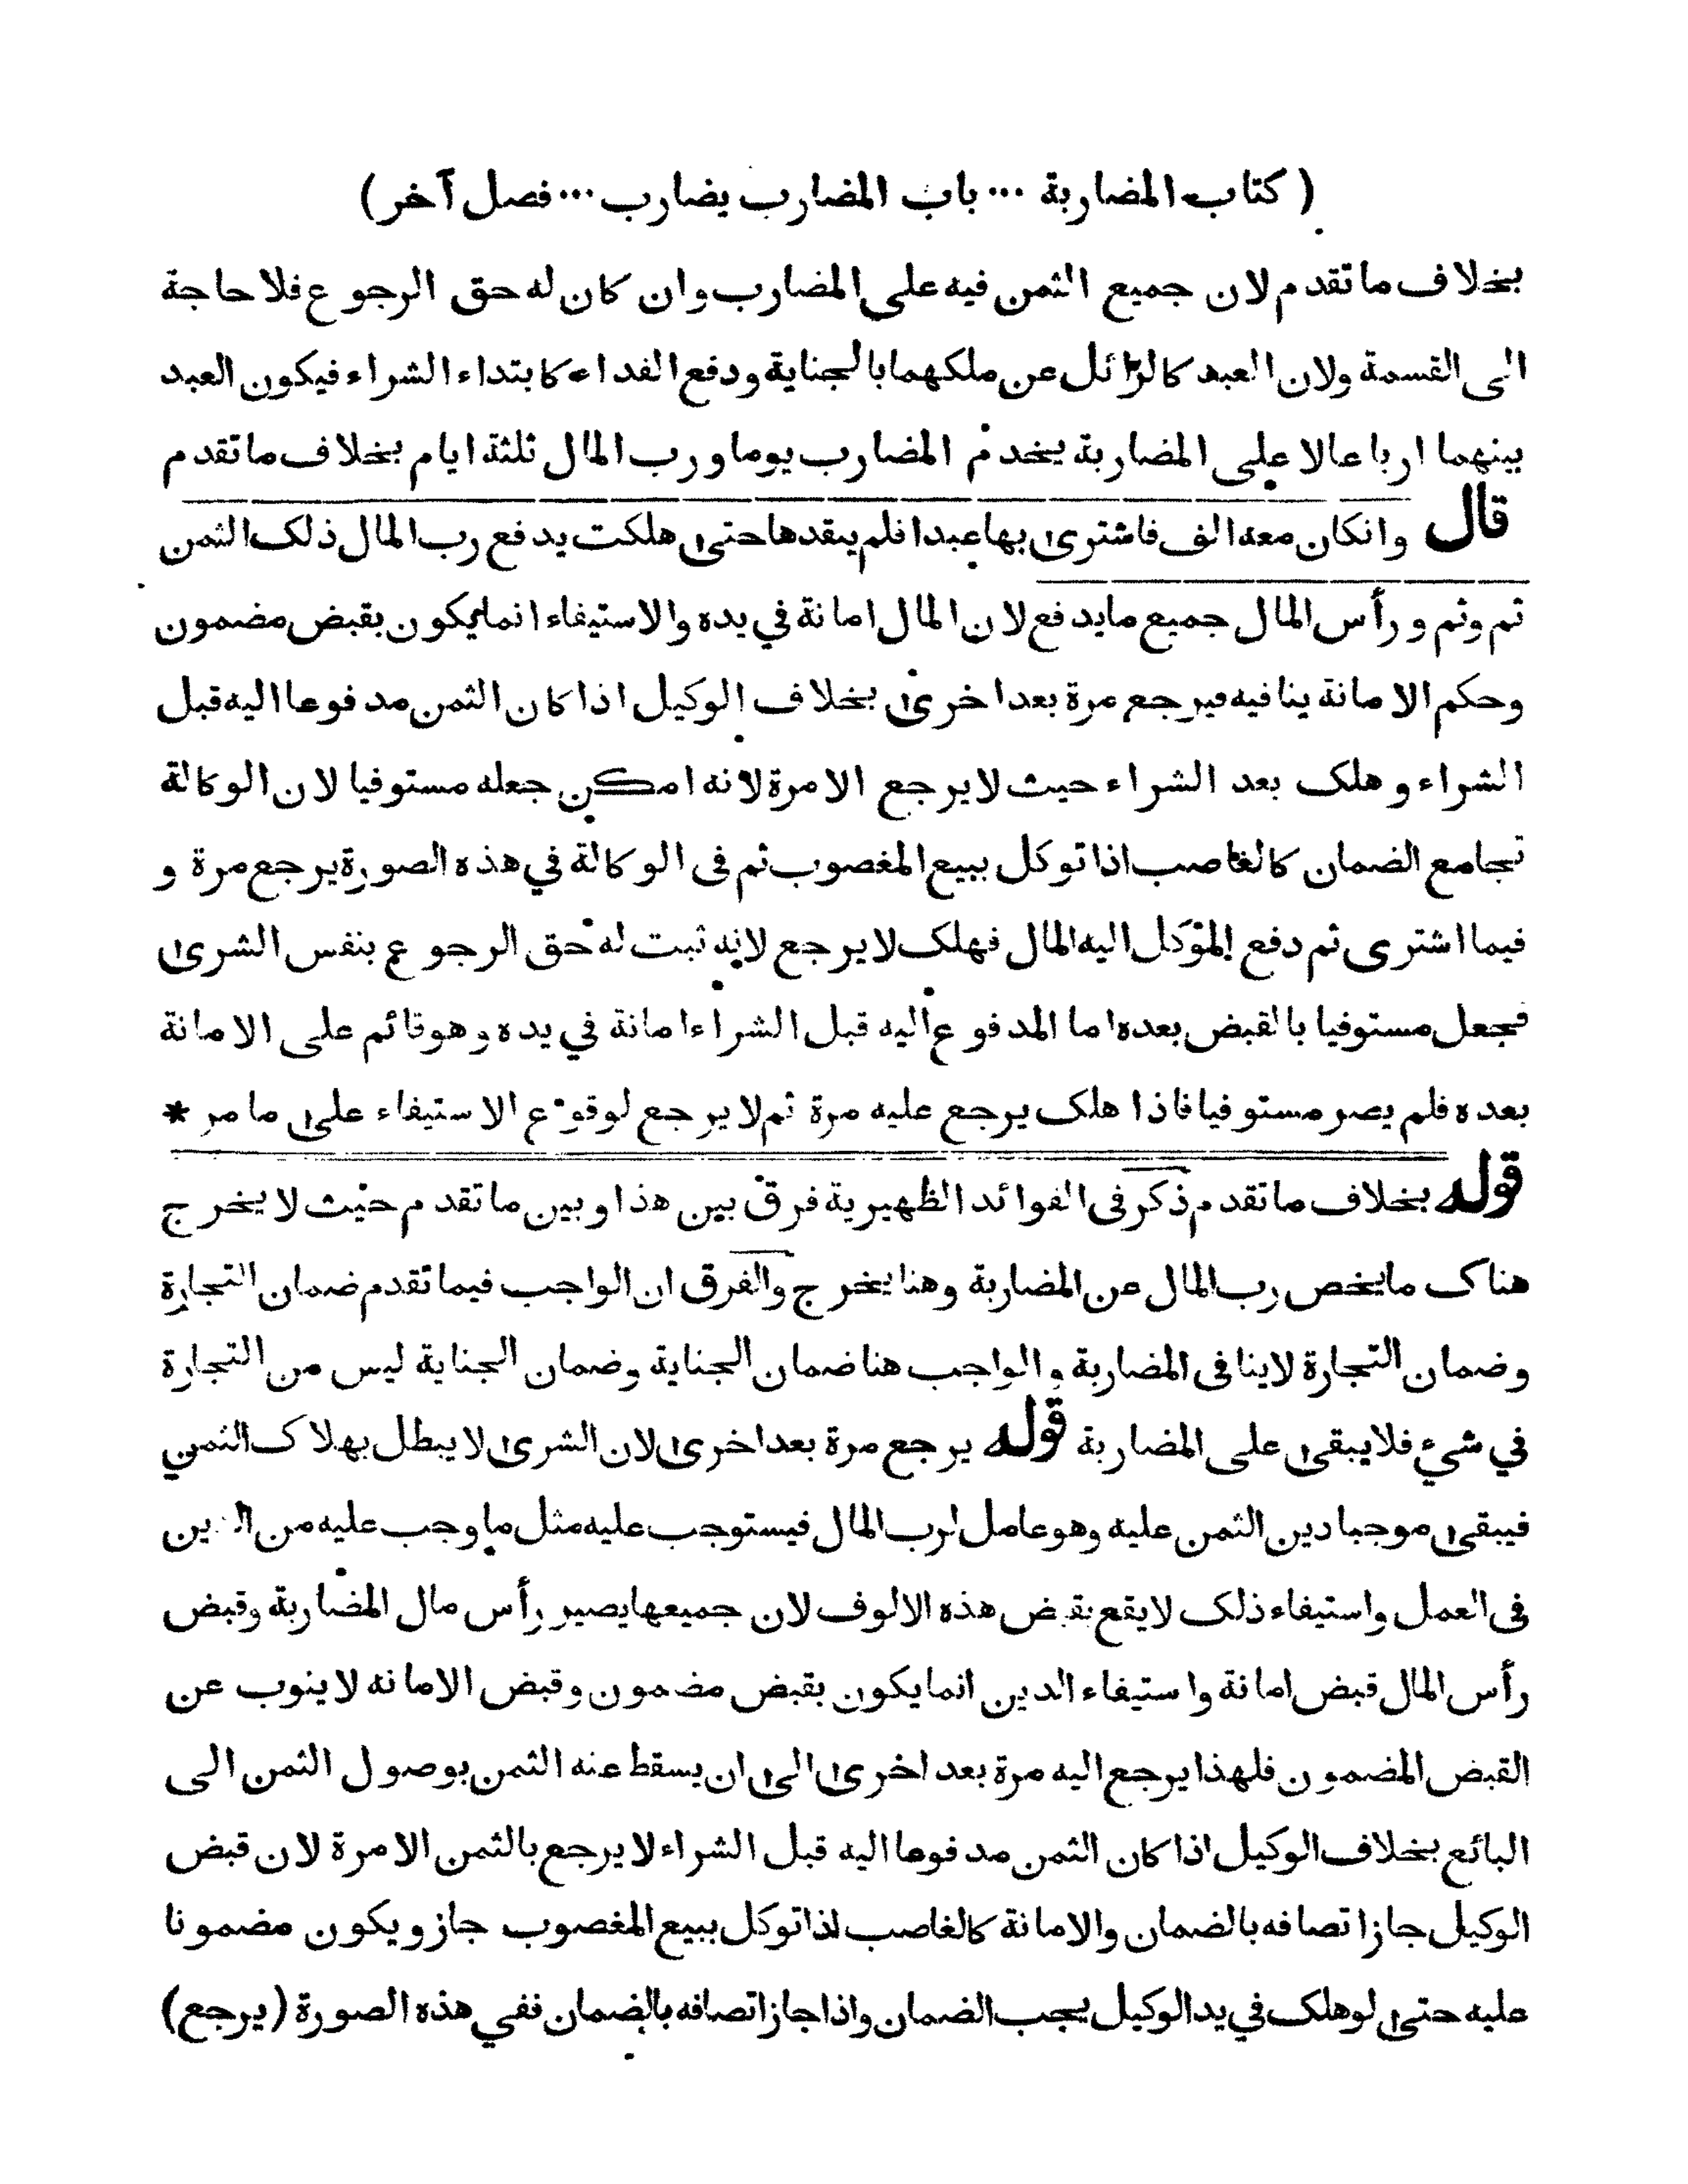 ( كتاب المضاربة ... باب المضارب يضارب ... فصل آخر )
بخلاف ما تقدم لان جميع الثمن فيه على المضارب وان كان له حق الرجوع فلا حاجة
الى القسمة ولان العبد كالزائل عن ملكهما بالجناية ودفع الفداء كابتداء الشراء فيكون العبد
بينهما ارباعا لا على المضاربة يخدم المضارب يوما ورب المال ثلثة ايام بخلاف ما تقدم
قال وان كان معه الف فاشترى بها عبدا فلم ينقدها حتى هلكت يدفع رب المال ذلك الثمن
ثم وثم ورأس المال جميع ما يدفع لان المال امانة في يده والاستيفاء انما يكون بقبض مضمون
وحكم الامانة ينافيه فيرجع مرة بعد اخرى بخلاف الوكيل اذا كان الثمن مدفوعا اليه قبل
الشراء وهلك بعد الشراء حيث لا يرجع الا مرة لانه امكن جعله مستوفيا لان الوكالة
تجامع الضمان كالغاصب اذا توكل ببيع المغصوب ثم فى الوكالة في هذه الصورة يرجع مرة و
فيما اشترى ثم دفع المؤكل اليه المال فهلك لا يرجع لانه ثبت له حق الرجوع بنفس الشرى
فجعل مستوفيا بالقبض بعده اما المدفوع اليه قبل الشراء امانة في يده وهو قائم على الامانة
بعده فلم يصر مستوفيا فاذا هلك يرجع عليه مرة ثم لا يرجع لوقوع الاستيفاء على ما مر *
قوله بخلاف ما تقدم ذكر فى الفوائد الظهيرية فرق بين هذا وبين ما تقدم حيث لا يخرج
هناك ما يخص رب المال عن المضاربة وهنا يخرج والفرق ان الواجب فيما تقدم ضمان التجارة
وضمان التجارة لا ينافى المضاربة والواجب هنا ضمان الجناية وضمان الجناية ليس من التجارة
في شيء فلا يبقى على المضاربة قوله يرجع مرة بعد اخرى لان الشرى لا يبطل بهلاك الثمن
فيبقى موجبا دين الثمن عليه وهو عامل لرب المال فيستوجب عليه مثل ما وجب عليه من الدين
فى العمل واستيفاء ذلك لا يقع بقبض هذه الالوف لان جميعها يصير رأس مال المضاربة وقبض
رأس المال قبض امانة واستيفاء الدين انما يكون بقبض مضمون وقبض الامانه لا ينوب عن
القبض المضمون فلهذا يرجع اليه مرة بعد اخرى الى ان يسقط عنه الثمن بوصول الثمن الى
البائع بخلاف الوكيل اذا كان الثمن مدفوعا اليه قبل الشراء لا يرجع بالثمن الا مرة لان قبض
الوكيل جاز اتصافه بالضمان والامانة كالغاصب اذا توكل ببيع المغصوب جاز ويكون مضمونا
عليه حتى لو هلك في يد الوكيل يجب الضمان واذا جاز اتصافه بالضمان ففي هذه الصورة (يرجع)